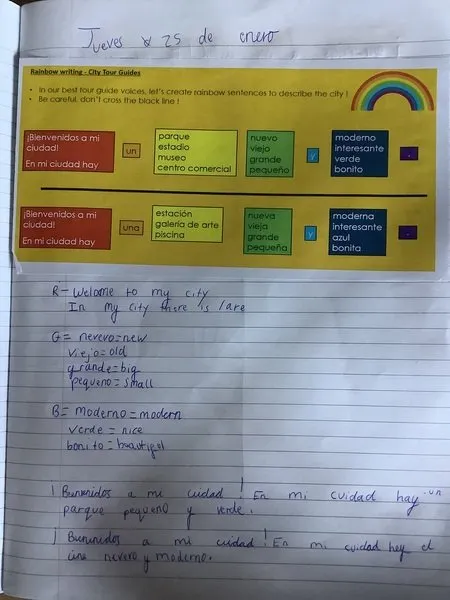 Jueves 25 de enero
Rainbow writing - City Tour Guides
• In our best tour guide voices, let's create rainbow sentences to describe the city !
• Be careful, don't cross the black line !
¡Bienvenidos a mi
ciudad!
En mi ciudad hay
un
parque
estadio
museo
centro comercial
nuevo
viejo
grande
pequeño
y
moderno
interesante
verde
bonito
.
¡Bienvenidos a mi
ciudad!
En mi ciudad hay
una
estación
galería de arte
piscina
nueva
vieja
grande
pequeña
y
moderna
interesante
azul
bonita
.
R - Welcome to my city
In my city there is / are
G = nevevo = new
viejo = old
grande = big
pequeno = small
B = moderno = modern
verde = nice
bonito =
¡ a mi ciudad! En mi cuidad hay un
parque pequeno y verde.
¡ a mi cuidad! En mi cuidad hey el
cine nevevo y moderno.